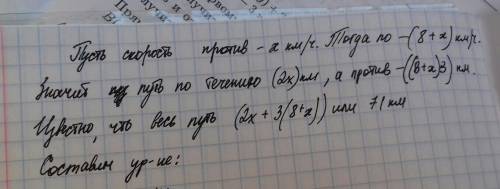 Пусть скорость против - x км/ч. Тогда по -(8+x) км/ч.
Значит путь по течению (2x) км, а против -((8+x)3) км.
Известно, что весь путь (2x+3(8+x)) или 71 км
Составим ур-ие: